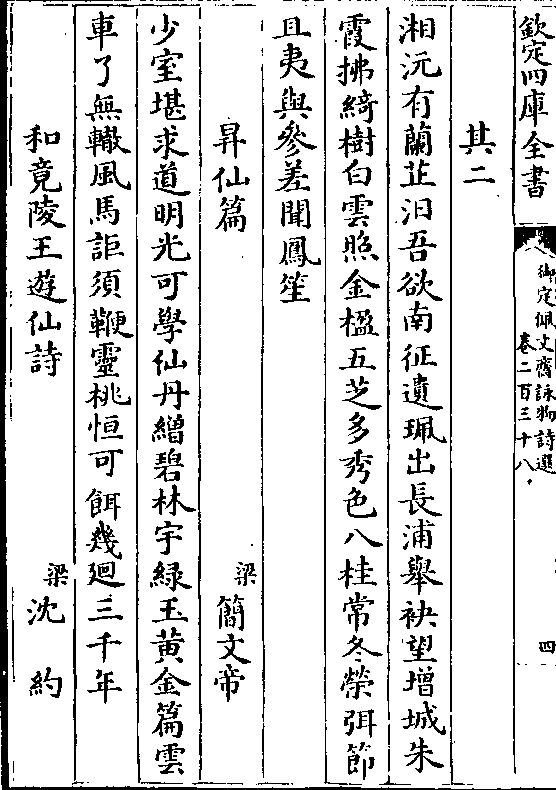 欽定四庫全書
御定佩文齋詠物詩選
卷二百三十八
四
其二
湘沅有蘭芷汨吾欲南征遺珮出長浦舉袂望增城朱
霞拂綺樹白雲照金楹五芝多秀色八桂常冬榮弭節
且夷與參差聞鳳笙
昇仙篇
梁 簡文帝
少室堪求道明光可學仙丹繒碧林宇綠玉黃金篇雲
車了無轍風馬詎須鞭靈桃恒可餌幾廻三千年
和竟陵王遊仙詩
梁 沈約